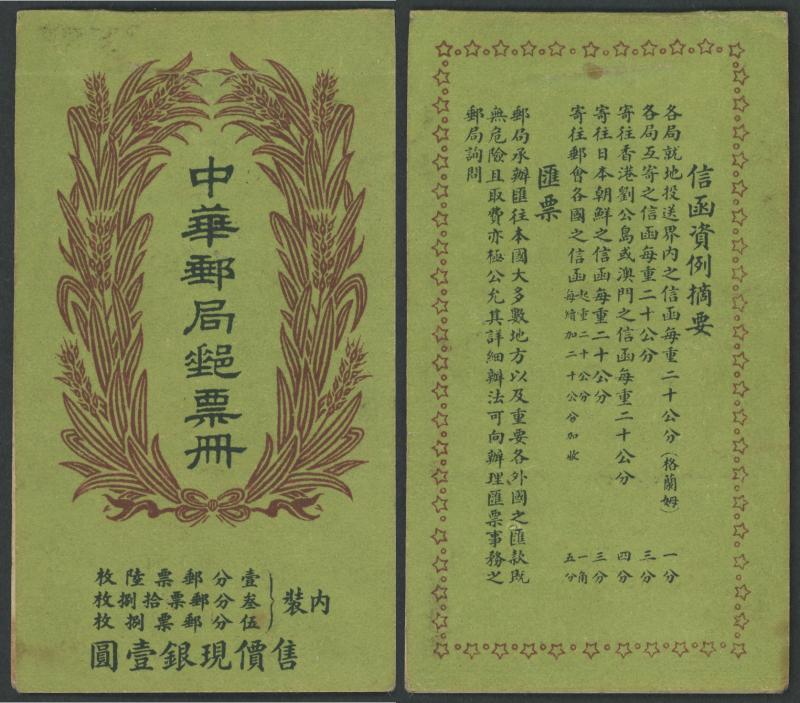 中華郵局郵票冊
內裝
壹分郵票陸枚
叁分郵票拾捌枚
伍分郵票捌枚
售價現銀壹圓
信函資例摘要
各局就地投送界內之信函每重二十公分(格蘭姆) 一分
各局互寄之信函每重二十公分 三分
寄往香港劉公島或澳門之信函每重二十公分 四分
寄往日本朝鮮之信函每重二十公分 三分
寄往郵會各國之信函起重二十公分 一角
每增加二十公分加收 五分
匯票
郵局承辦匯往本國大多數地方以及重要各外國之匯款既
無危險且取費亦極公允其詳細辦法可向辦理匯票事務之
郵局詢問